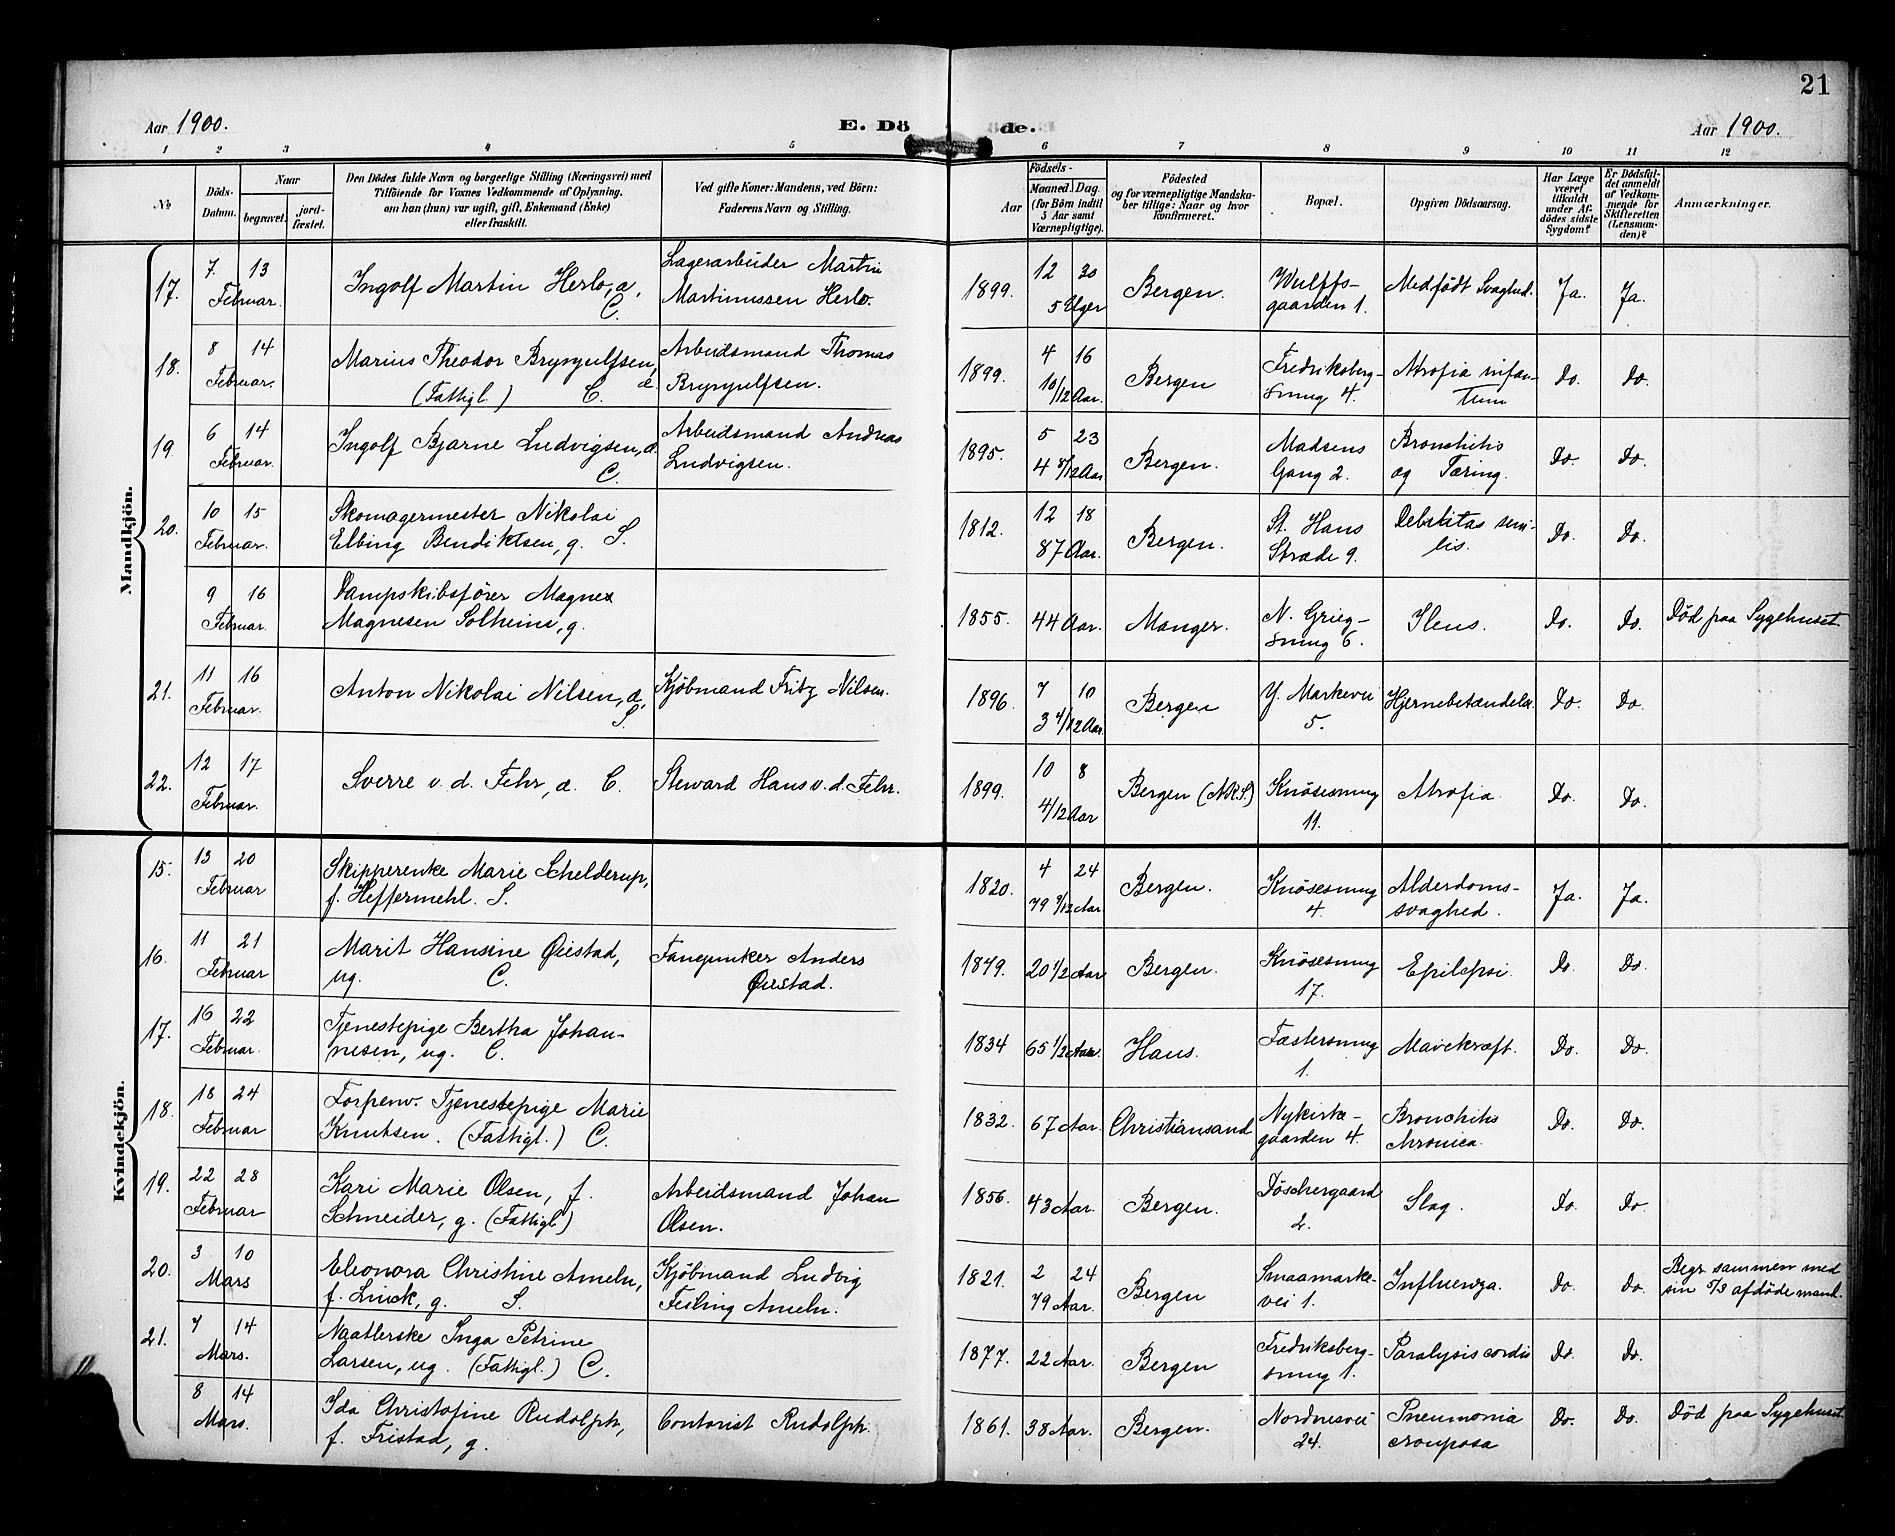 21
Aar 1900.
E. Döde.
Aar 1900.
1 2 3 4 5 6 7 8 9 10 11 12
No
Döds-Datum.
Naar
begravet.
jord-fæstet.
Den Dödes fulde Navn og borgerlige Stilling (Næringsvei) med
Tilföiende for Voxnes Vedkommende af Oplysning,
om han (hun) var ugift, gift, Enkemand (Enke)
eller fraskilt.
Ved gifte Koner: Mandens, ved Börn:
Faderens Navn og Stilling.
Födsels-
Aar
Maaned. Dag.
(for Börn indtil
5 Aar samt
Værnepligtige).
Födested
og for værnepligtige Mandska-
ber tillige: Naar og hvor
Konfirmeret.
Bopæl.
Opgiven Dödsaarsag.
Har Læge
været
tilkaldt
under Af-
dödes sidste
Sygdom?
Er Dödsfal-
det anmeldt
af Vedkom-
mende for
Skifteretten
(Lensman-
den)?
Anmærkninger.
Mandkjön.
17. 7. 13 Februar. Ingolf Martin Herlo, a. C. Lagerarbeider Martin Martinussen Herlo. 1899. 12 30 5 Uger Bergen. Wulffs-gaarden 1. Medfödt Svaghed. Ja. Ja.
18. 8 14 Februar. Marius Theodor Brynjulfsen, a (Fattigl.) C. Arbeidsmand Thomas Brynjulfsen. 1899. 4 16 10/12 Aar. Bergen Fredriksberg-smug 4. Atrofia infan-tum Do. Do.
19. 6 14 Februar. Ingolf Bjarne Ludvigsen, a. C. Arbeidsmand Andreas Ludvigsen. 1895. 5 23 4 8/12 Aar. Bergen. Madsens Gang 2. Bronchitis og Tæring. Do. Do.
20. 10 15 Februar. Skomagermester Nikolai Elbing Bendiktsen, g. S. 1812. 12 18 87 Aar. Bergen. St. Hans Stræde 9. Debilitas seni-lis. Do. Do.
9 16 Februar. Dampskibsfører Magnus Magnesen Solheim, g. 1855. 44 Aar. Manger. N. Grieg-smug 6. Ileus. Do. Do. Död paa Sygehuset
21. 11 16 Februar. Anton Nikolai Nilsen, a. S. Kjöbmand Fritz Nilsen. 1896. 7 10 3 4/12 Aar. Bergen Y. Markevei 5. Hjernebetændelse. Do. Do.
22. 12 17 Februar. Sverre v. d. Fehr, a. C. Steward Hans v. d. Fehr. 1899. 10 8 4/12 Aar Bergen (N.K.S.) Knösesmug 11. Atrofia. Do. Do.
Kvindekjön.
15. 13 20 Februar Skipperenke Marie Schelderup, f. Heffermehl. S. 1820. 4 24 79 9/12 Aar. Bergen. Knösesmug 4. Alderdoms-svaghed. Ja. Ja.
16. 11 21 Februar Marit Hansine Øiestad, ug. C. Anders Øiestad. 1879. 20 1/2 Aar Bergen. Knösesmug 17. Epilepsi. Do. Do.
17. 16 22 Februar. Tjenestepige Bertha Johan-nesen, ug. C. 1834 65 1/2 Aar. Haus. Fæstersmug 1. Mavekræft. Do. Do.
18. 18 24 Februar Forpenv. Tjenestepige Marie Knutsen. (Fattigl.) C. 1832. 67 Aar. Christiansand Nykirke-gaarden 4. Bronchitis chronica. Do. Do.
19. 22 28 Februar Kari Marie Olsen, f. Schneider, g. (Fattigl.) Arbeidsmand Johan Olsen. 1856. 43 Aar. Bergen. Döschergaard 2. Slag. Do. Do
20. 3 10 Mars Eleonora Christine Ameln, f. Linck, g. S. Kjöbmand Ludvig Feiling Ameln. 1821. 2 24 79 Aar. Bergen Smaamarke-vei 1. Influenza. Do. Do. Begr. sammen med sin 5/3 afdöde mand.
21. 7 14 Mars. Naatlerske Inga Petrine Larsen, ug. (Fattigl.) C. 1877. 22 Aar. Bergen Fredriksberg-smug 1. Paralysis cordis Do. Do.
8 14 Mars. Ida Christofine Rudolph, f. Fristad, g. Contorist Rudolph. 1861. 38 Aar. Bergen. Nordnesvei 24. Pneumonia crouposa Do. Do. Död paa Sygehuset